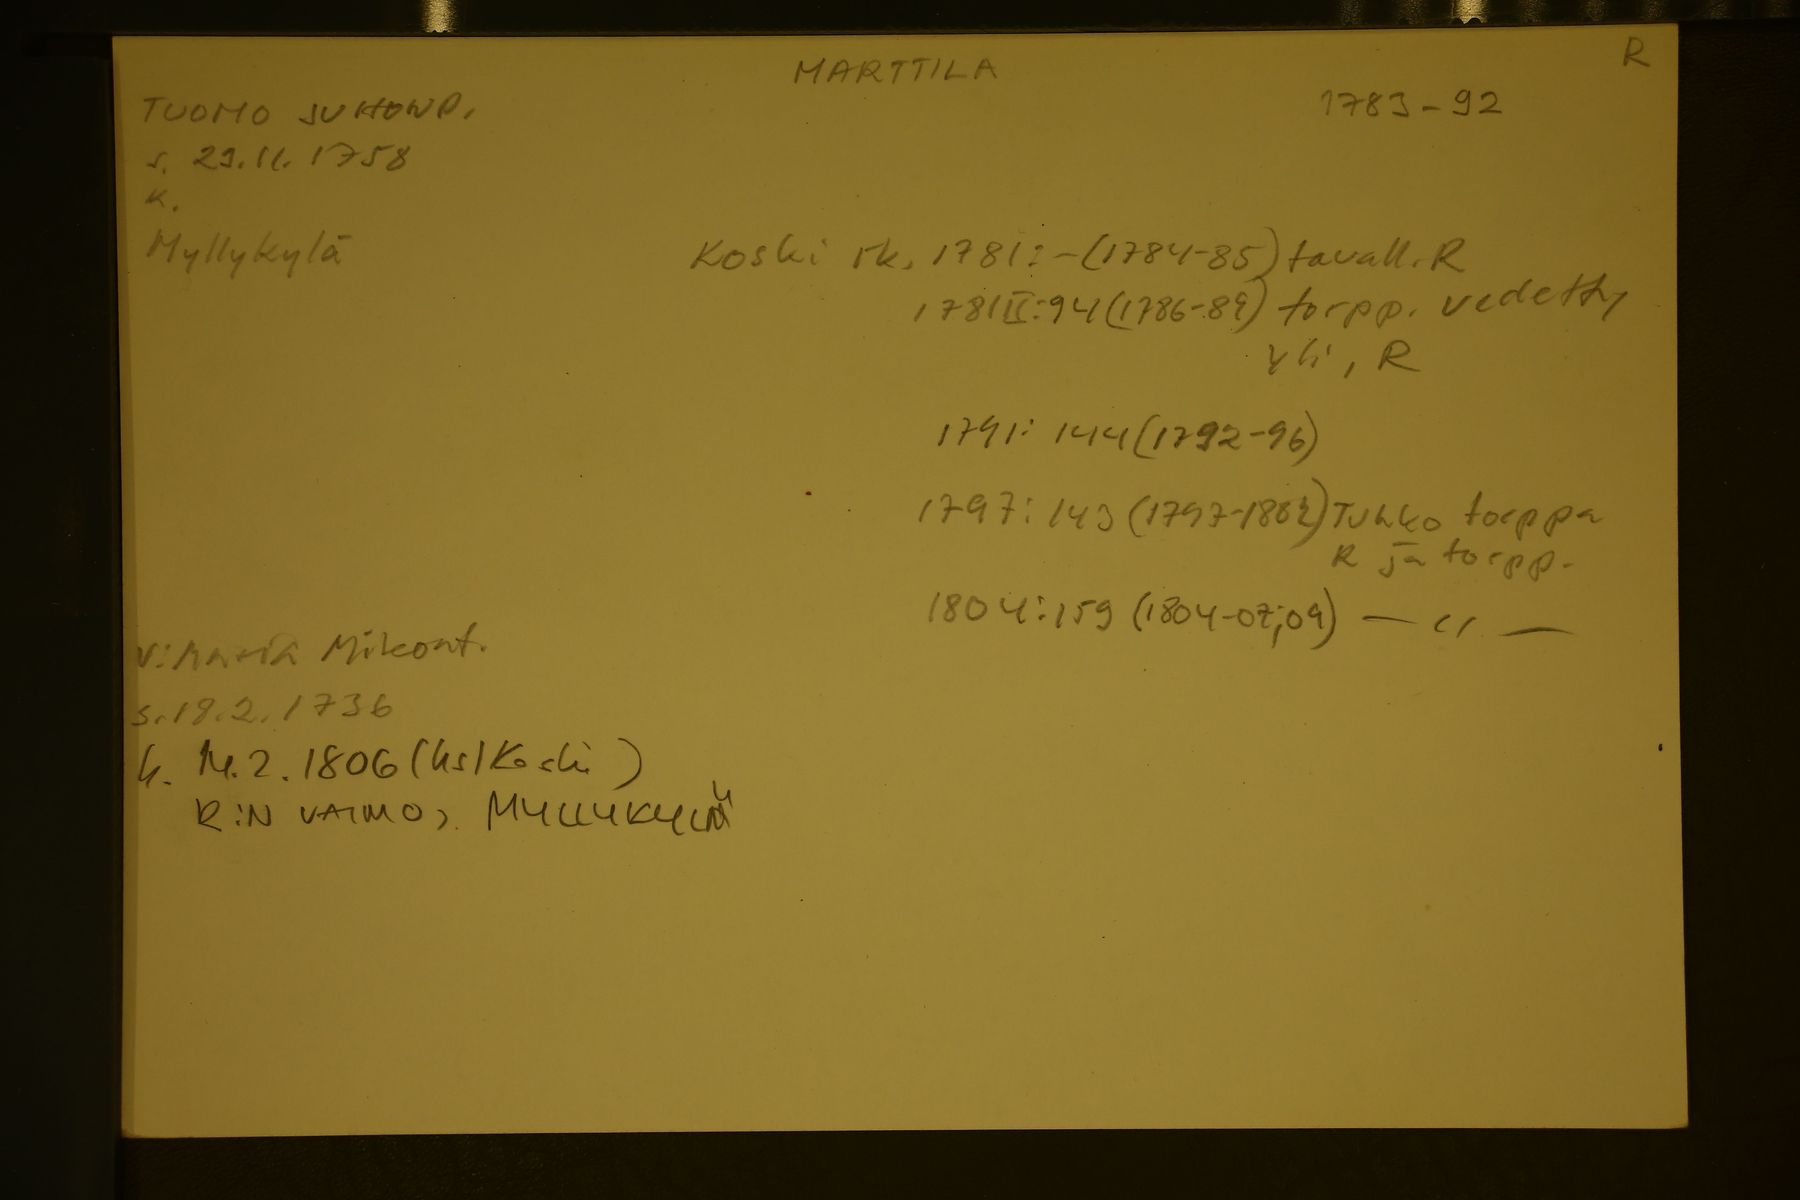 MARTTILA
R
TUOMO JUHONP.
1783-92
s. 29.11. 1758
k.
Myllykylä
Koski rk. 1781: - (1784-85) tavall. R
1781II: 94 (1786-89) torpp. vedetty
yli, R
1791: 144 (1792-96)
1797: 143 (1797-1802) Tuhko torppa
R ja torpp.
1804: 159 (1804-07; 09) — " —
v: Maria Mikont.
s. 18.2. 1736
k. 14.2. 1806 (hs/Koski)
R:N VAIMO, MYLLYKYLÄ